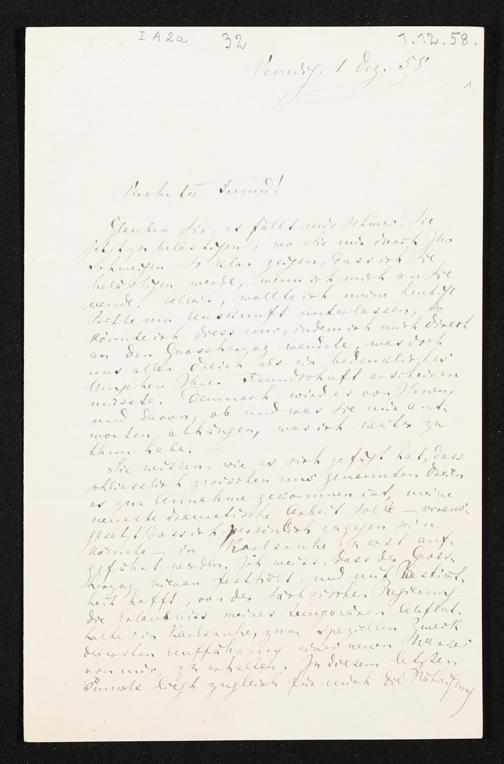 I A 2 a 32 1.12.58.
Venedig. 1 Dez. 58
1.
Verehrter Freund!
Glauben Sie, es fällt mir schwer, Sie
jetzt zu belästigen, wo Sie mir durch Ihr
Schweigen so klar zeigen, dass ich Sie
belästigen werde, wenn ich mich an Sie
wende. Allein, wollte ich meine heutige
Bitte um Auskunft unterlassen, so
könnte ich diess nur, indem ich mich direct
an den Grossherzog wendete, was doch
uns allen Dreien als ein bedenkliches
Umgehen Ihrer Freundschaft erscheinen
müsste. Demnach wird es von Ihnen,
und davon, ob und was Sie mir ant-
worten abhängen, was ich weiter zu
thun habe. —
Sie wissen, wie es sich gefügt hat, dass
schliesslich zwischen uns genannten Dreien
es zur Annahme gekommen ist, meine
neueste dramatische Arbeit solle — voraus-
gesetzt dass ich persönlich zugegen sein
könnte — in Karlsruhe zuerst auf-
geführt werden. Ich weiss, dass der Gross-
herzog hieran festhält, und mit Bestimt-
heit hofft, von der Sächsischen Regierung
die Erlaubniss meines temporären Aufent-
haltes in Karlsruhe, zum speziellen Zweck
der ersten Aufführung eines neuen Werkes
von mir, zu erhalten. In diesem letzten
Punkte liegt zugleich für mich die Nöthigung